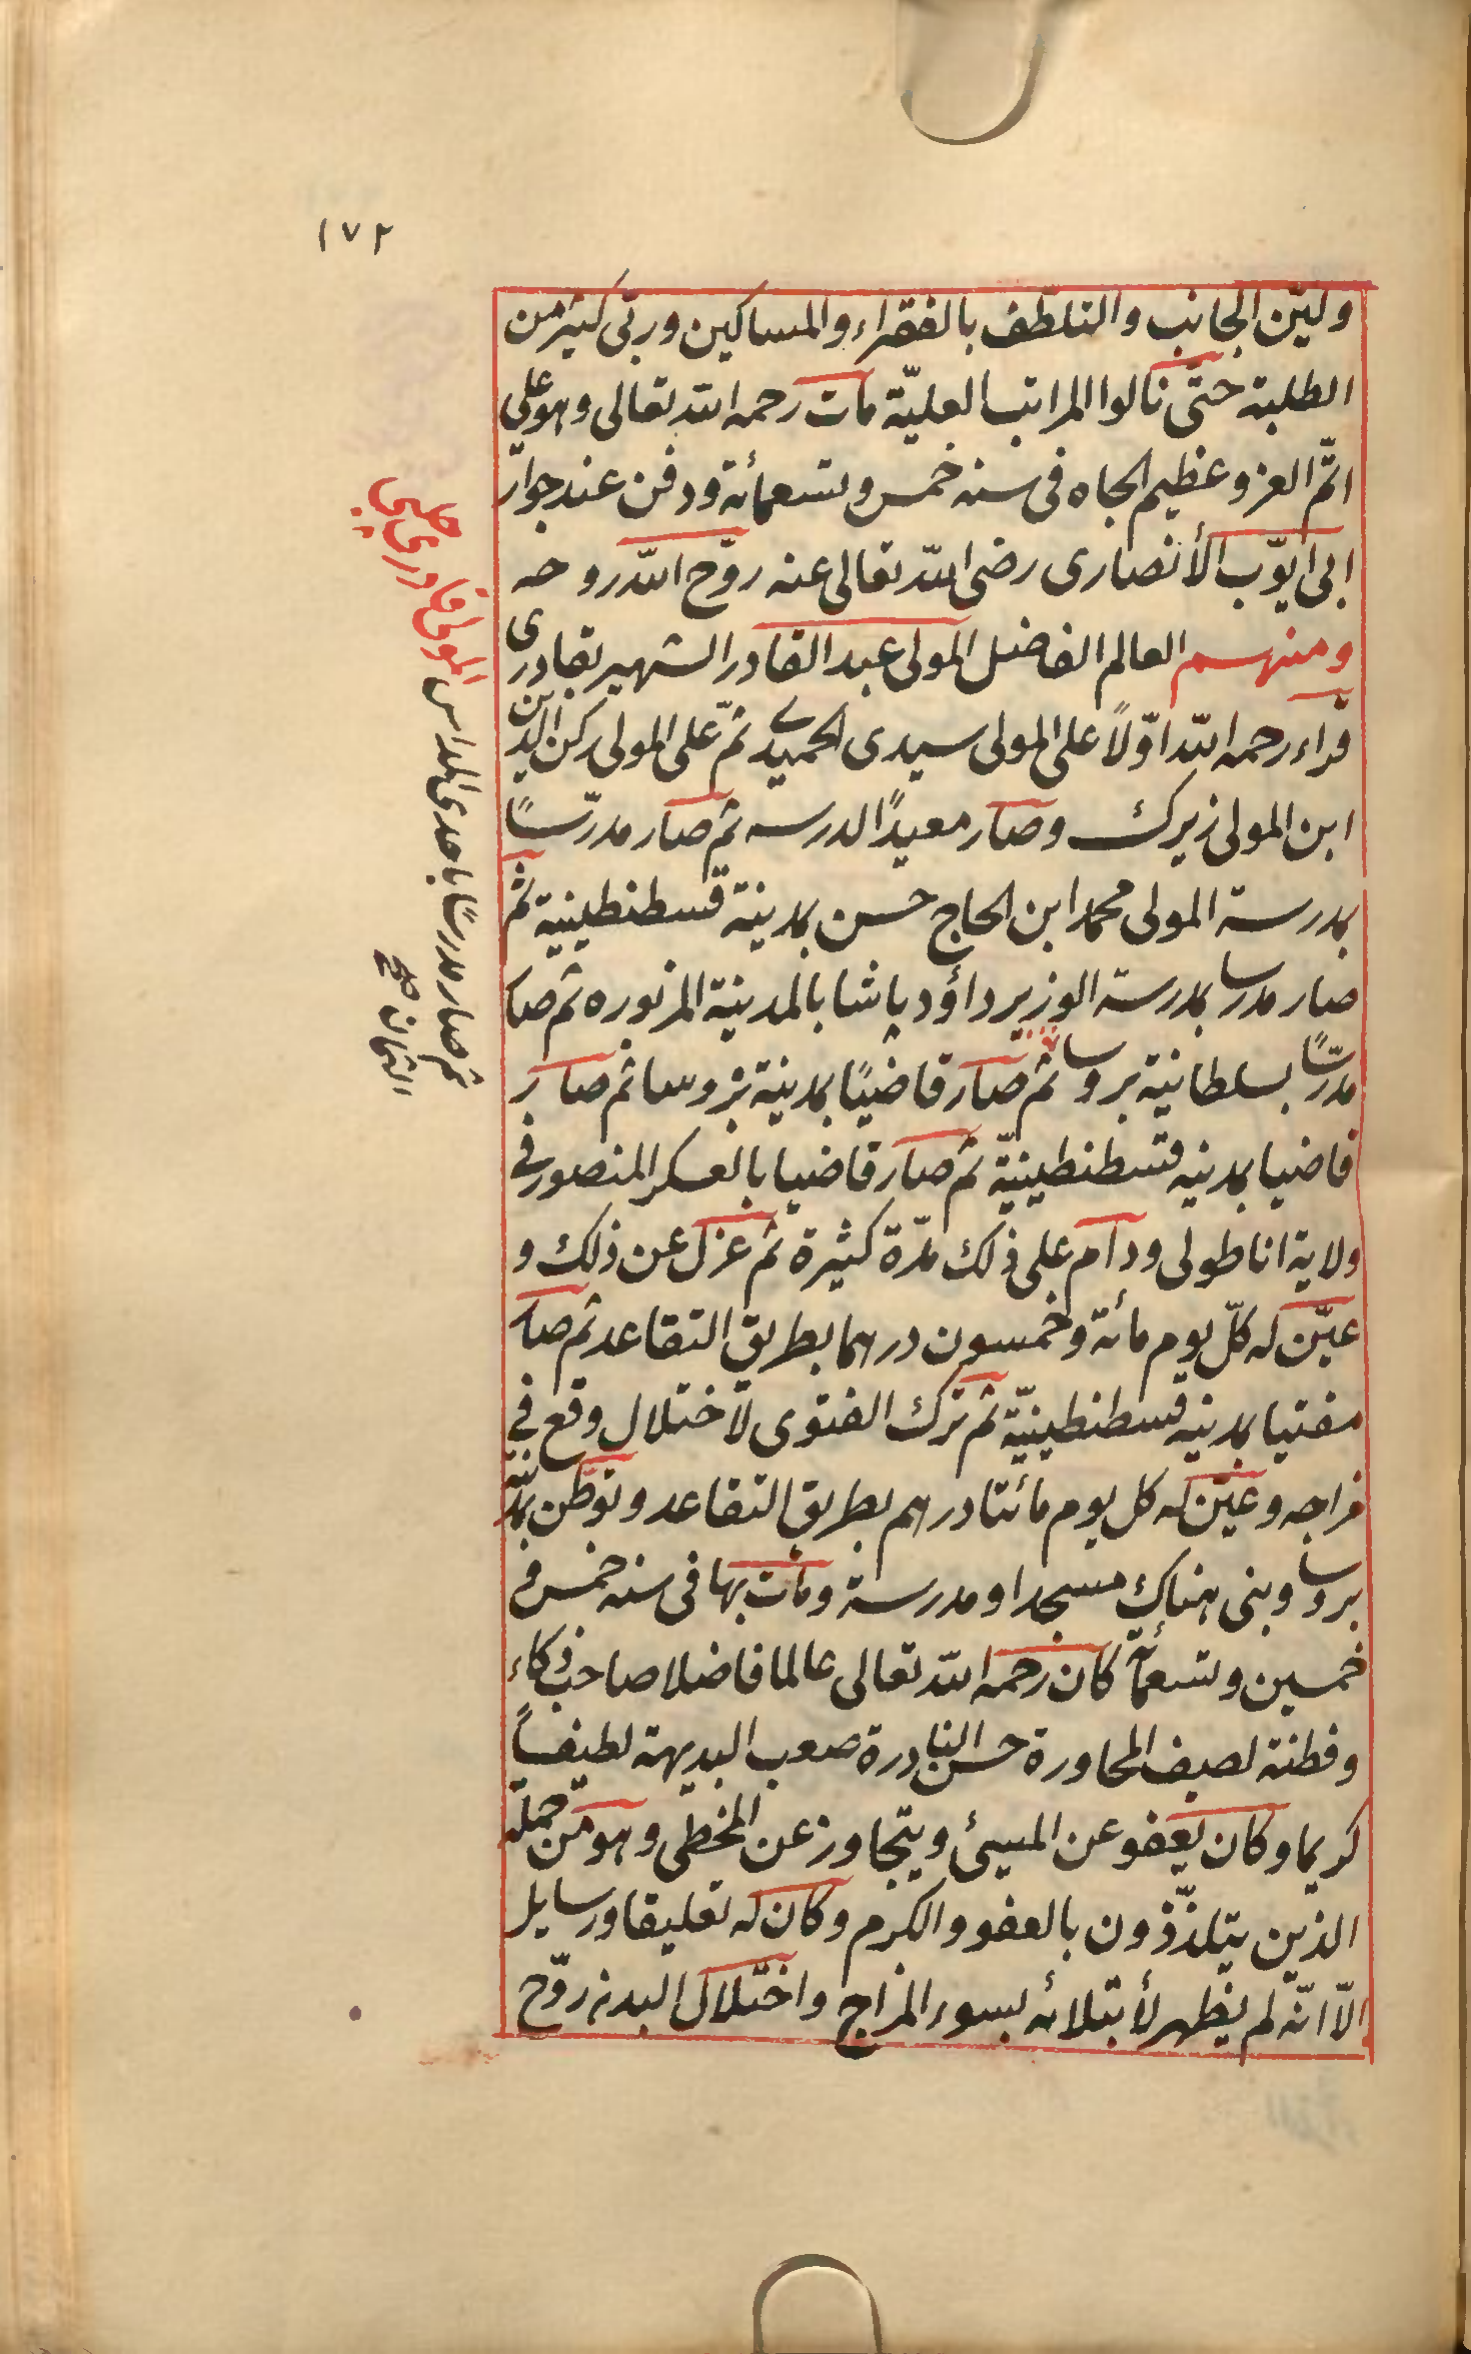 ١٧٢
ولين الجانب والتلطّف بالفقراء والمساكين وربّى كثير من
الطلبة حتّى نالوا المراتب العليّة مات رحمه الله تعالى وهو على
اتمّ العز وعظيم الجاه فى سنه خمس وتسعمأئة ودفن عند جوار
ابى ايّوب الأنصارى رضى الله تعالى عنه روّح الله روحه
ومنهم العالم الفاضل المولى عبد القادر الشهير بقادرى
قراء رحمه الله اوّلاً على المولى سيدى الحميدى ثمّ على المولى ركن الدين
ابن المولى زيرك وصار معيدًا لدرسه ثم صار مدرّسًا
بمدرسة المولى محمد ابن الحاج حسن بمدينة قسطنطينية ثم
صار مدرسا بمدرسة الوزير داؤد پاشا بالمدينة المزنوره ثم صا
مدرّسًا بسلطانية بروسا ثم صار قاضيًا بمدينة بروسا ثم صار
قاضيا بمدينه قسطنطينيّة ثم صار قاضيا بالعسكر المنصور فى
ولاية اناطولى ودام على ذلك مدّة كثيرة ثم عزل عن ذلك و
عيّن له كلّ يوم مائة وخمسون درهما بطريق التقاعد ثم صار
مفتيا بمدينه قسطنطينيّة ثم ترك الفتوى لاختلال وقع فى
مزاجه وعيّن له كل يوم مائتا درهم بطريق التقاعد وتوطّن بمدينة
بروسا وبنى هناك مسجدا ومدرسة ومات بها فى سنه خمس و
خمسين وتسعمأئة كان رحمه الله تعالى عالما فاضلا صاحب ذكاء
وفطنة لصيف المحاورة حسن النادرة صعب البديهة لطيفاً
كريما وكان يعفو عن المسيئ ويتجاوز عن المخطى وهو من جملة
الذين يتلذّذون بالعفو والكرم وكان له تعليقا ورسايل
الّا انّه لم يظهر لأبتلائه بسوء المزاج واختلال البدنه روّح
المولى قادرى چلبى
ثم صار مدرسًا باحدى المدارس
الثمان صح